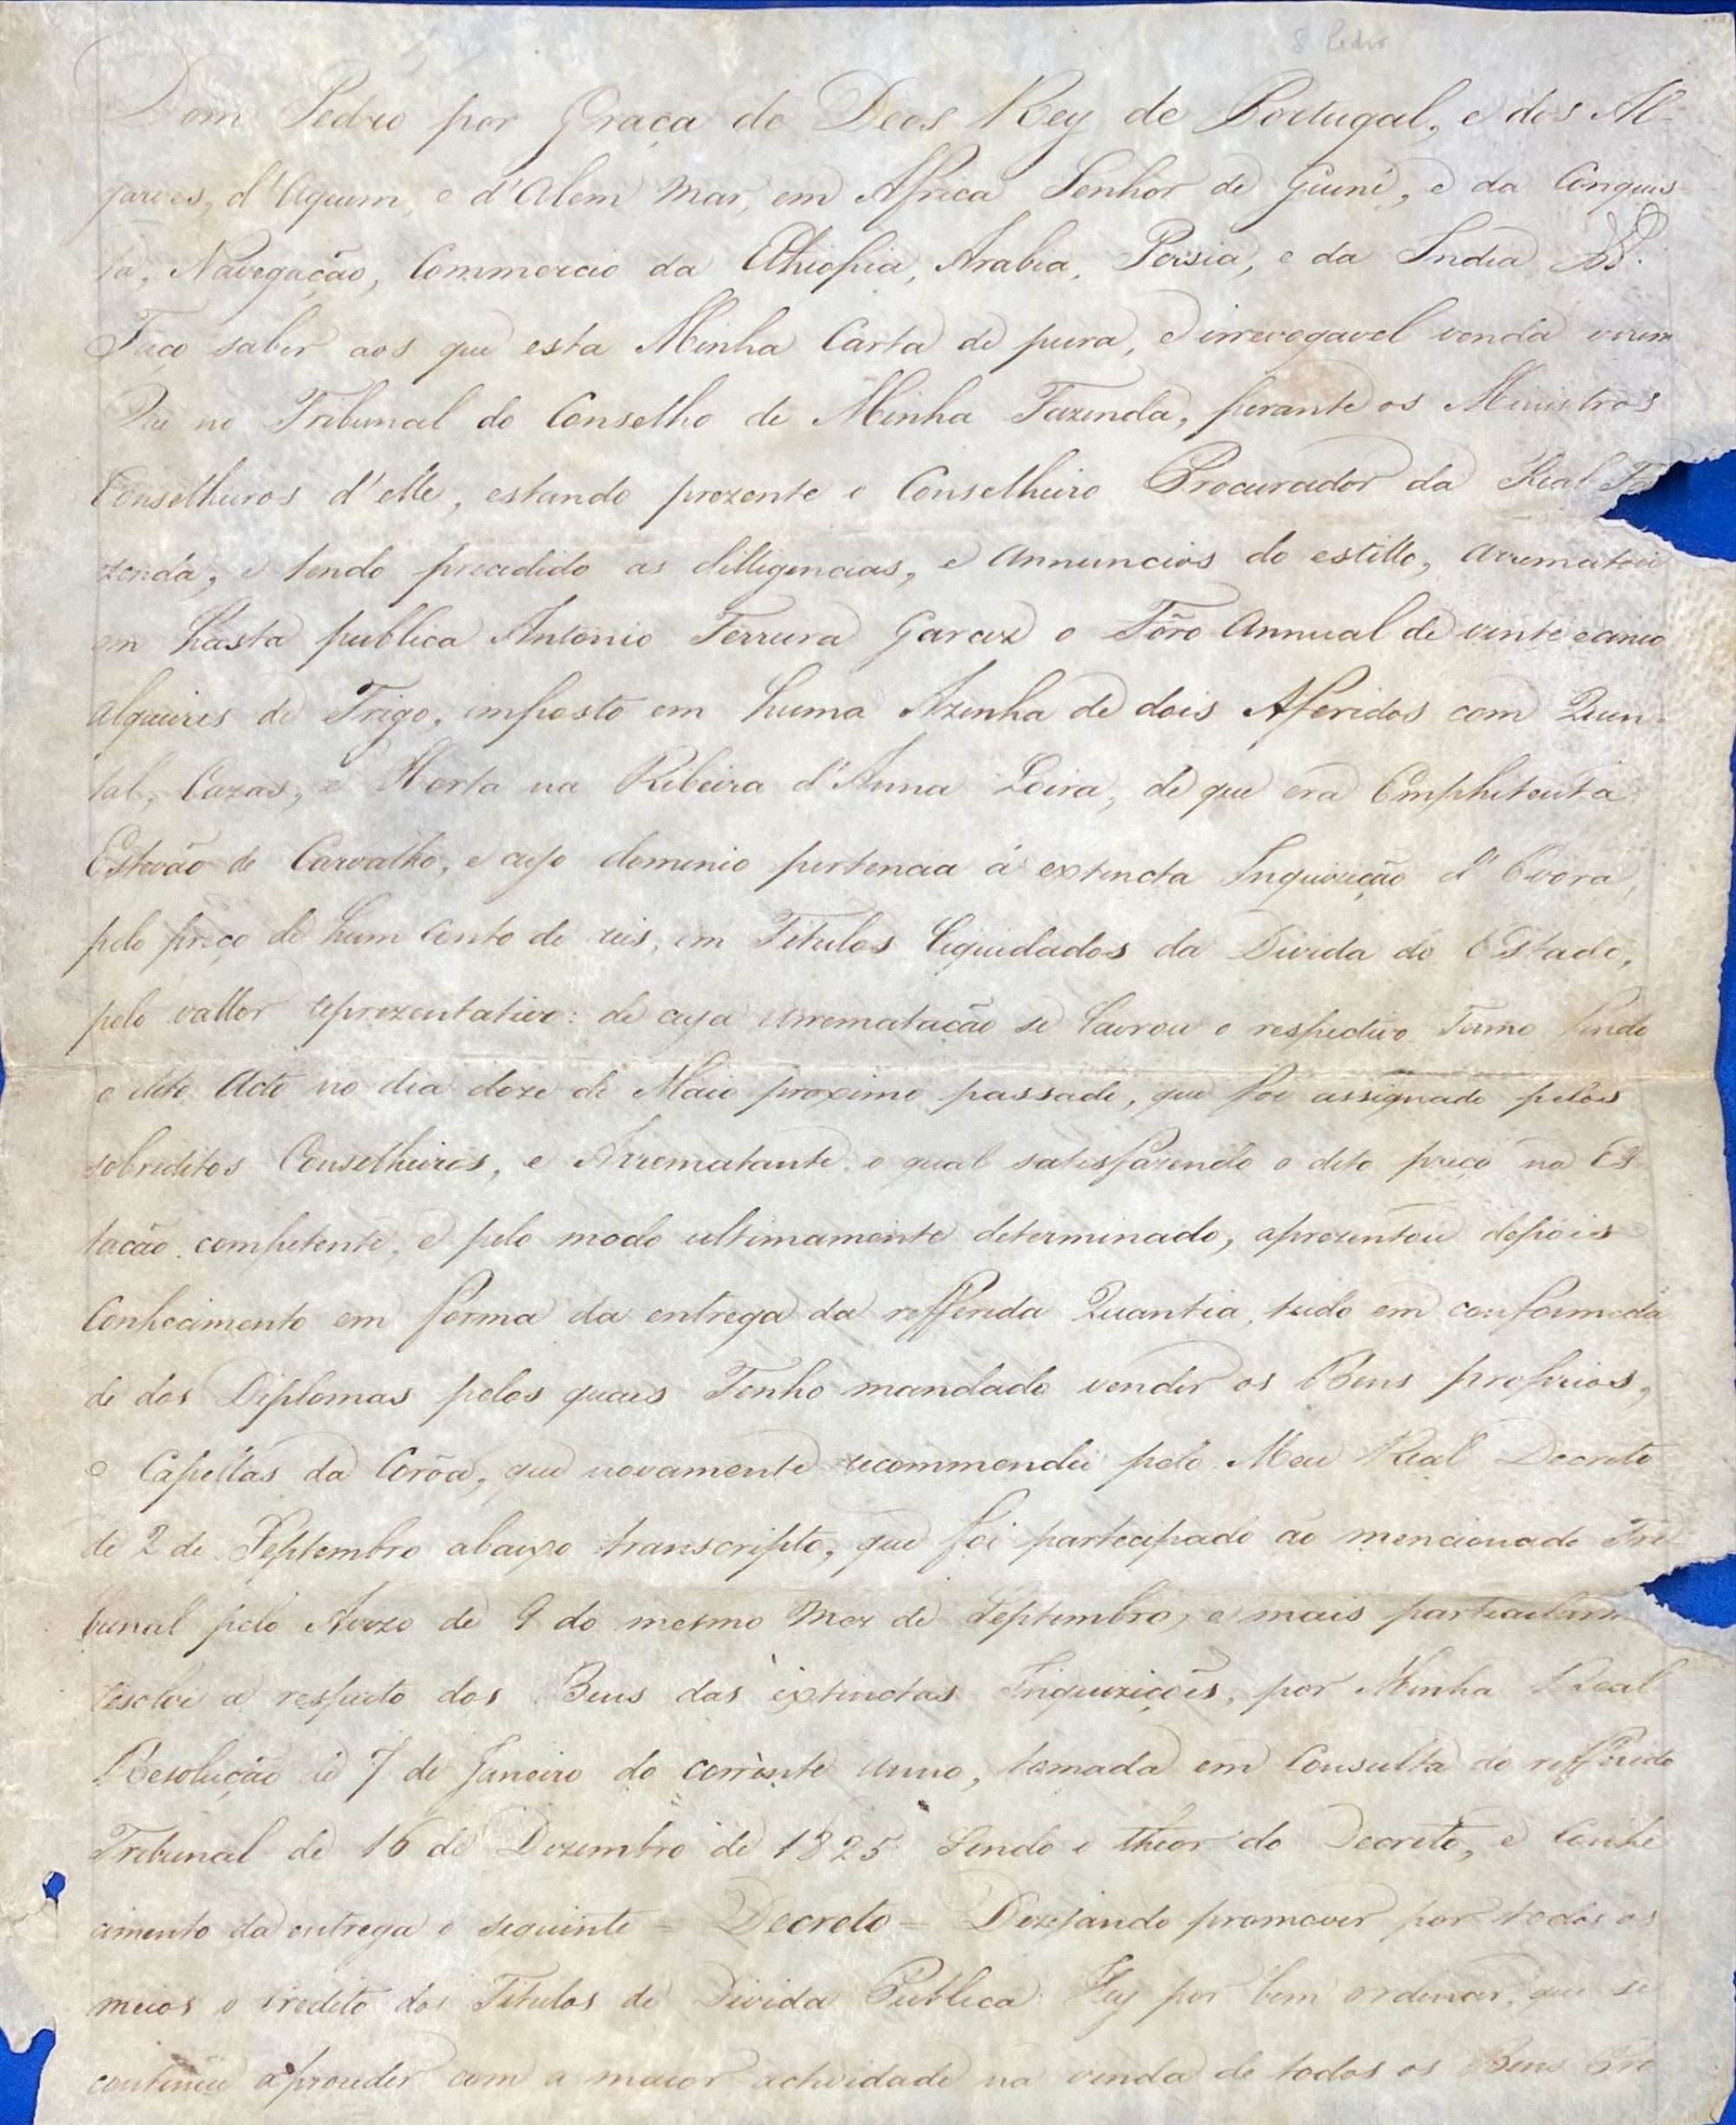 Dom Pedro por Graça de Deos Rey de Portugal, e dos Al-
garves, d'Aquem, e d'Alem Mar, em Africa Senhor de Guiné, e da Conquis-
ta, Navegação, Commercio da Ethiopia, Arabia, Persia, e da India
Faço saber aos que esta Minha Carta de pura, e irrevogavel venda virem
Que no Tribunal do Conselho de Minha Fazenda, perante os Ministros
Conselheiros d'elle, estando prezente o Conselheiro Procurador da Real Fa
zenda, e tendo precedido as dilligencias, e Annuncios do estillo, arrematou
em hasta publica Antonio Ferreira Garcez o Fôro Annual de vinte e cinco
alqueires de Trigo, imposto em huma Azenha de dois Aferidos com Quin-
tal, Cazas, e Horta na Ribeira d'Anna Loira, de que era Emphiteuta
Estevão de Carvalho, e cujo dominio pertencia á extincta Inquizição d'Evora,
pelo preço de hum Conto de reis, em Titulos liquidados da Divida do Estado,
pelo vallor reprezentativo: de cuja arrematação se lavrou o respectivo Termo sendo
o dito Acto no dia doze de Maio proximo passado, que foi assignado pelos
sobreditos Conselheiros, e Arrematante, o qual satisfazendo o dito preço na Es-
tação competente, e pelo modo ultimamente determinado, aprezentou depois
Conhecimento em forma da entrega da refferida Quantia, tudo em conformida
de dos Diplomas pelos quaes Tenho mandado vender os Bens proprios,
e Capellas da Corôa, que novamente recommendei pelo Meu Real Decreto
de 2 de Septembro abaixo transcripto, que foi partecipado ao mencionado Tri
bunal pelo Avizo de 9 do mesmo Mez de Septembro, e mais particularm
resolvi a respeito dos Bens das extinctas Inquizições, por Minha Real
Resolução de 7 de Janeiro do corrente anno, tomada em Consulta do refferido
Tribunal de 16 de Dezembro de 1825 Sendo o theor do Decreto, e Conhe
cimento da entrega o seguinte = Decreto = Dezejando promover por todos os
meios o credito dos Titulos de Divida Publica: Hey por bem ordenar, que se
continue a proceder com a maior actividade na venda de todos os Bens Pro